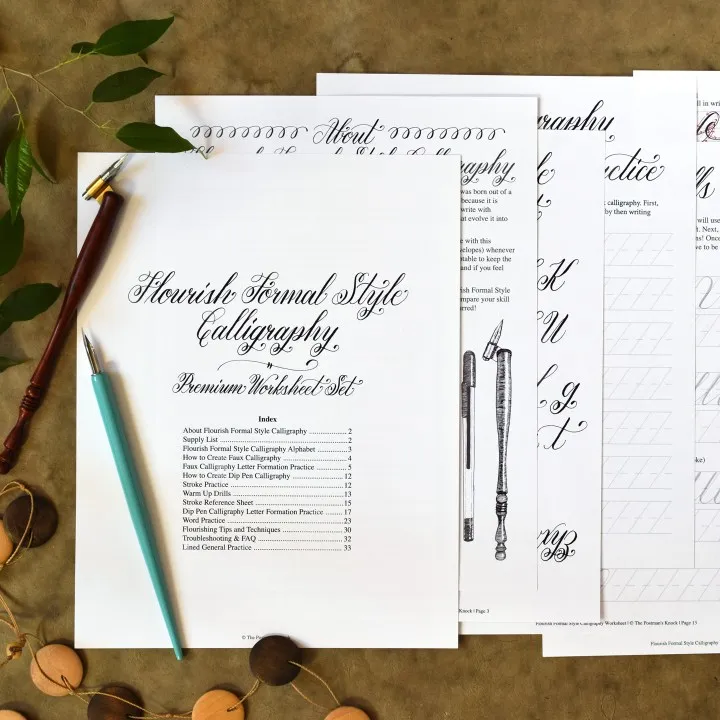 Flourish Formal Style
Calligraphy
Premium Worksheet Set
Index
About Flourish Formal Style Calligraphy ........ 2
Supply List ........ 2
Flourish Formal Style Calligraphy Alphabet ........ 3
How to Create Faux Calligraphy ........ 4
Faux Calligraphy Letter Formation Practice ........ 5
How to Create Dip Pen Calligraphy ........ 12
Stroke Practice ........ 12
Warm Up Drills ........ 13
Stroke Reference Sheet ........ 15
Dip Pen Calligraphy Letter Formation Practice ........ 17
Word Practice ........ 23
Flourishing Tips and Techniques ........ 30
Troubleshooting & FAQ ........ 32
Lined General Practice ........ 33
© The Postman's Knock
About
was born out of a
because it is
write with
at evolve it into
e with this
elopes) whenever
table to keep the
and if you feel
rish Formal Style
mpare your skill
rred!
Knock | Page 3
raphy
K
U
g
t
Flourish Formal Style Calligraphy Worksheet | © The Postman's Knock | Page 15
ctice
calligraphy. First,
by then writing
ll in
will use
h. Next,
s! Once
ve to be
Flourish Formal Style Calligraphy